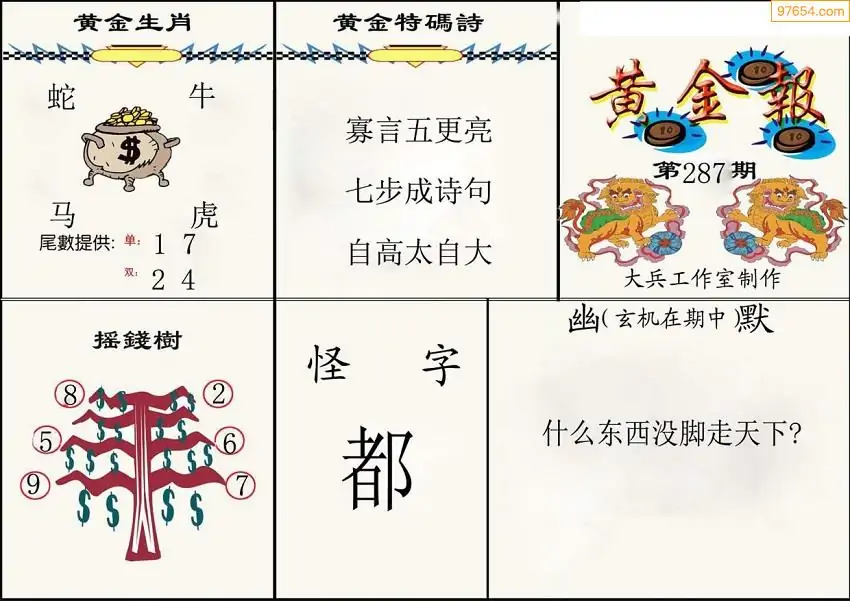 97654.com
黄金生肖
蛇 牛
$
马 虎
尾數提供: 单: 1 7
双: 2 4
黄金特碼詩
寡言五更亮
七步成诗句
自高太自大
黄金報
10
10
10
第287期
大兵工作室制作
摇錢樹
8 2
5 6
9 7
$ $ $ $
$ $ $ $
$ $ $ $
$ $ $ $
怪 字
都
幽(玄机在期中)默
什么东西没脚走天下?